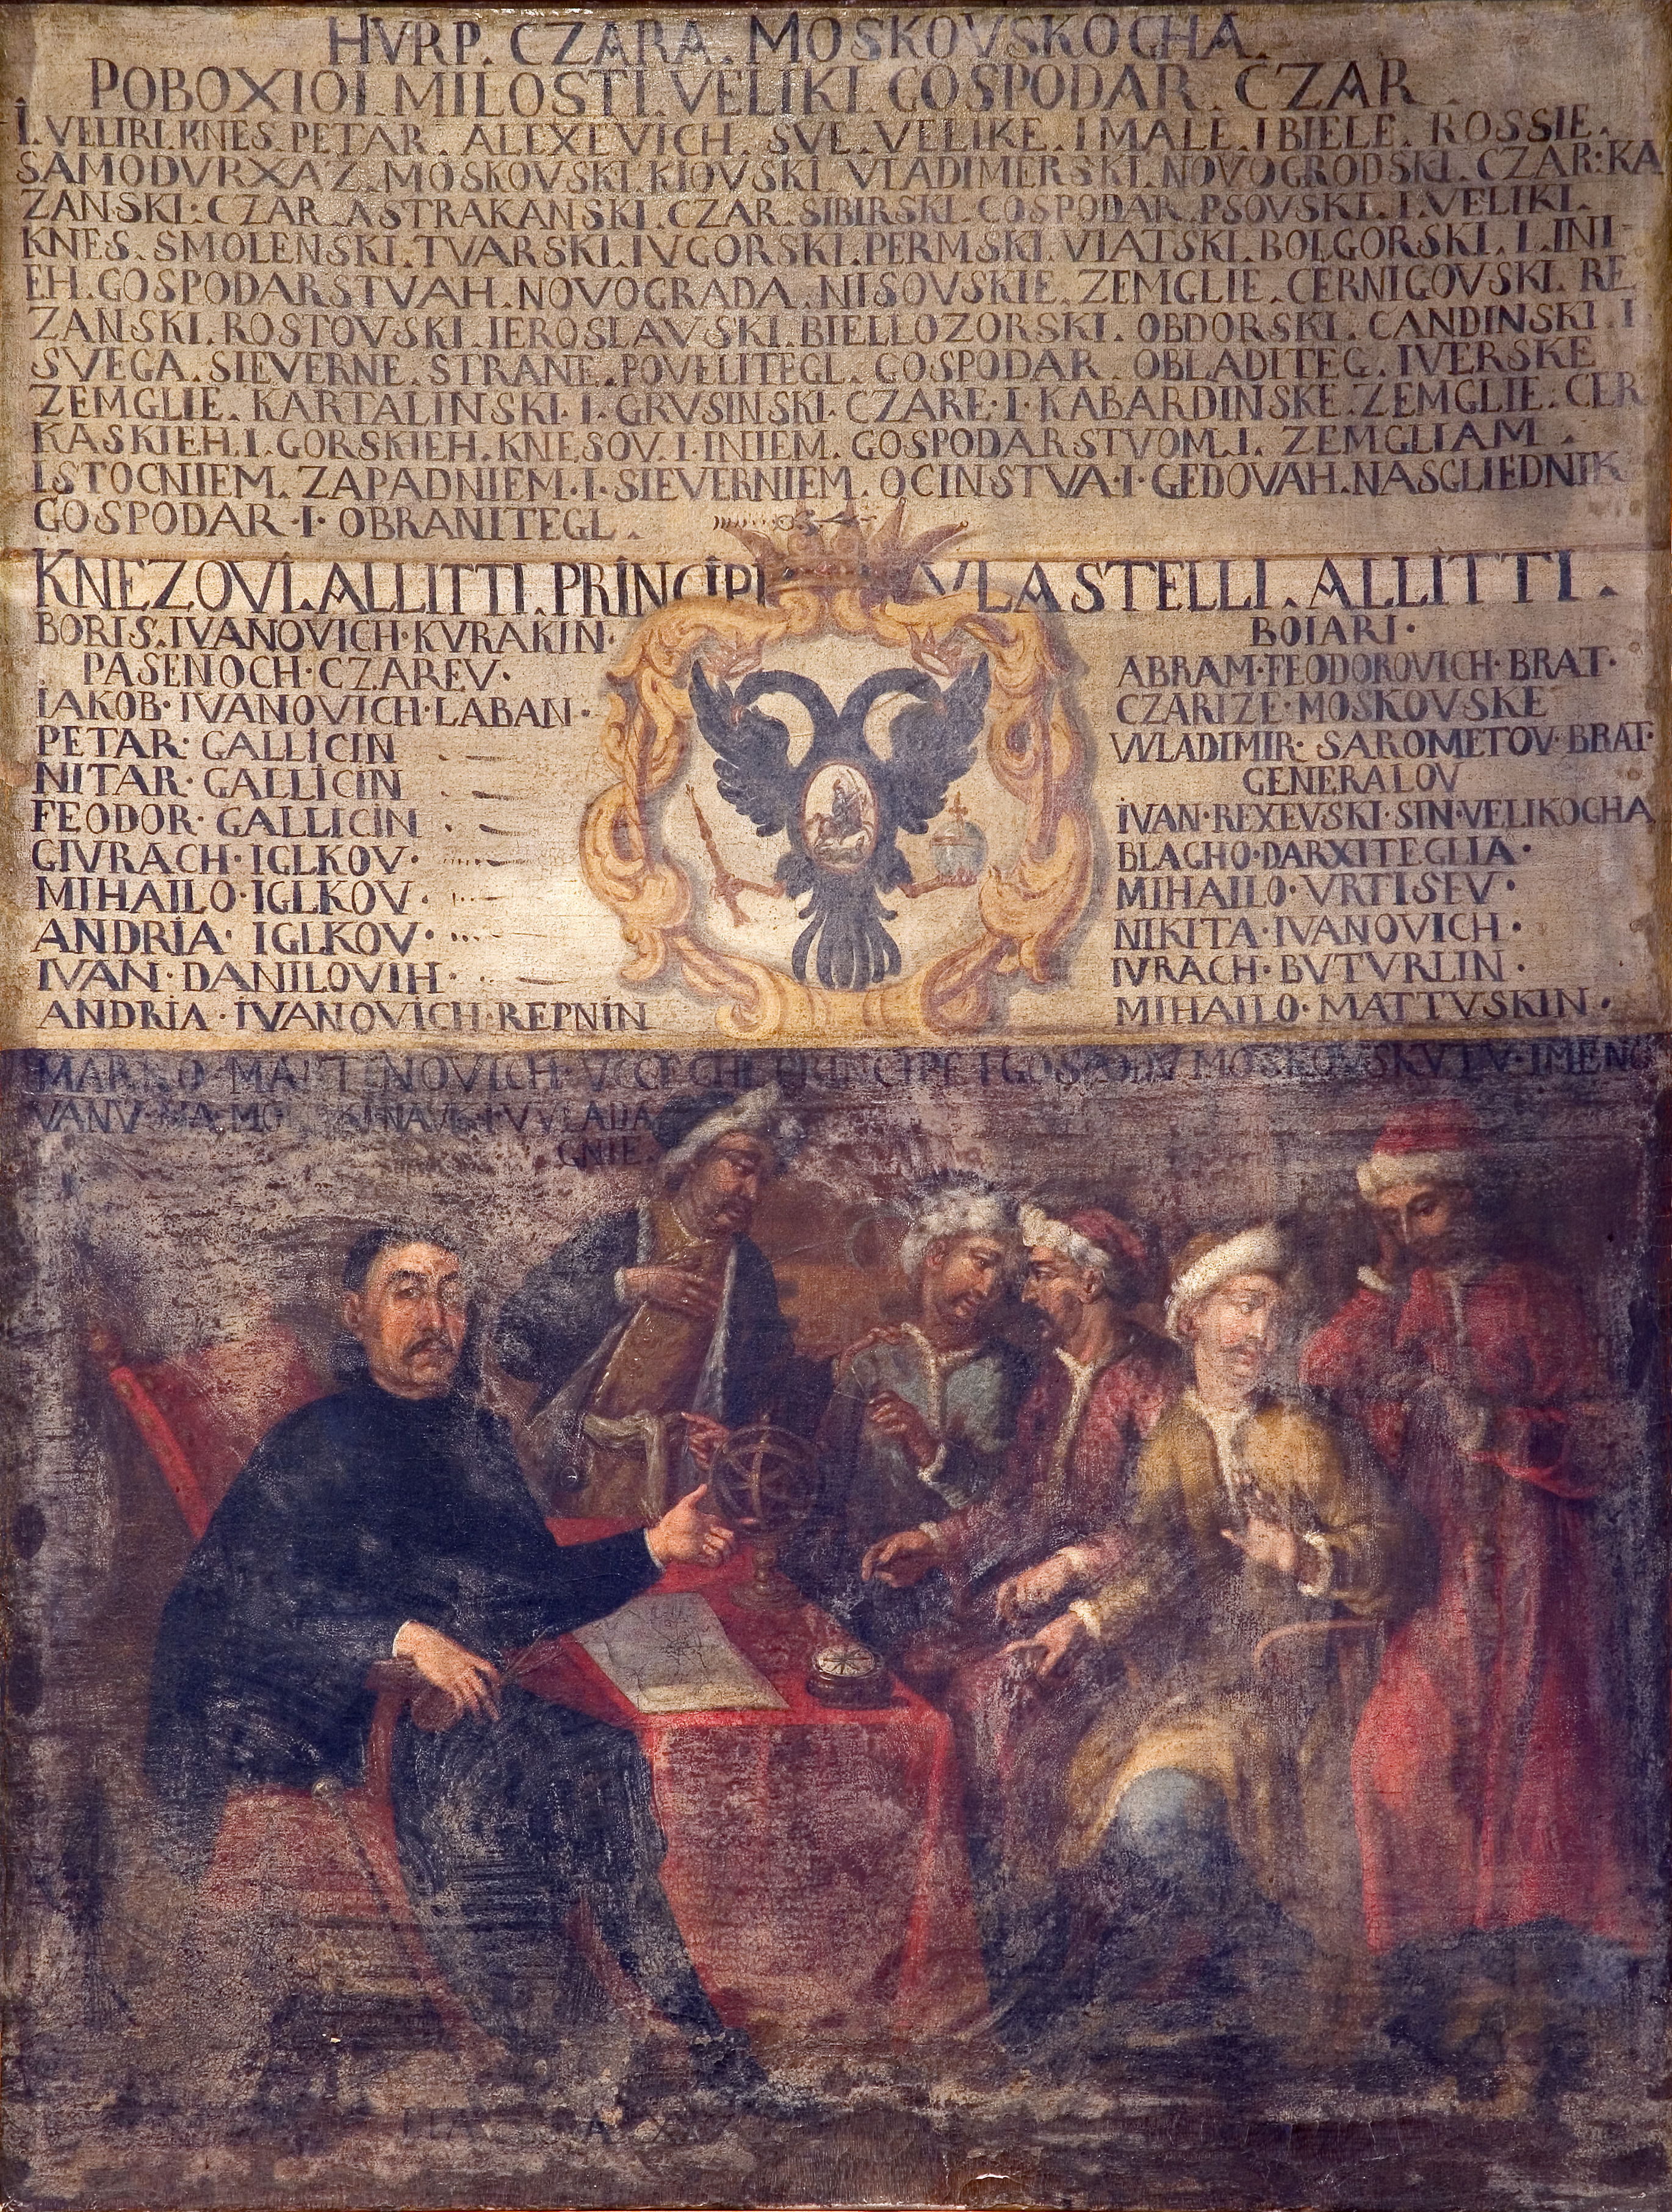 HVRP. CZARA. MOSKOVSKOGHA.
POBOXIOI. MILOSTI. VELIKI. GOSPODAR. CZAR.
I. VELIRI. KNES. PETAR. ALEXEVICH. SVE. VELIKE. I MALE. I BIELE. ROSSIE.
SAMODVRXAZ. MOSKOVSKI. KIOVSKI. VLADIMERSKI. NOVOGRODSKI. CZAR: KA
ZANSKI: CZAR. ASTRAKANSKI. CZAR. SIBIRSKI. GOSPODAR. PSOVSKI. I. VELIKI.
KNES. SMOLENSKI. TVARSKI. IVGORSKI. PERMSKI. VIATSKI. BOLGORSKI. I. INI-
EH. GOSPODARSTVAH. NOVOGRADA. NISOVSKIE. ZEMGLIE. CERNIGOVSKI. RE
ZANSKI. ROSTOVSKI. IEROSLAVSKI. BIELLOZORSKI. OBDORSKI. CANDINSKI. I
SVEGA. SIEVERNE. STRANE. POVELITEGL. GOSPODAR. OBLADITEG. IVERSKE
ZEMGLIE. KARTALINSKI. I. GRVSINSKI. CZARE. I. KABARDINSKE. ZEMGLIE. CER
KASKIEH. I. GORSKIEH. KNESOV. I. INIEM. GOSPODARSTVOM. I. ZEMGLIAM.
ISTOCNIEM. ZAPADNIEM. I. SIEVERNIEM. OCINSTVA. I. GEDOVAH. NASGLIEDNIK
GOSPODAR. I. OBRANITEGL.
KNEZOVI. ALLITTI. PRINCIPI VLASTELLI. ALLITTI.
BORIS. IVANOVICH. KVRAKIN.
PASENOCH. CZAREV.
IAKOB. IVANOVICH. LABAN.
PETAR. GALLICIN
NITAR. GALLICIN
FEODOR. GALLICIN
GIVRACH. IGLKOV.
MIHAILO. IGLKOV.
ANDRIA. IGLKOV.
IVAN. DANILOVIH.
ANDRIA. IVANOVICH. REPNIN
BOIARI.
ABRAM. FEODOROVICH. BRAT.
CZARIZE. MOSKOVSKE
VVLADIMIR. SAROMETOV. BRAT.
GENERALOV
IVAN. REXEVSKI. SIN. VELIKOGHA
BLAGHO. DARXITEGLIA.
MIHAILO. VRTISEV.
NIKITA. IVANOVICH.
IVRACH. BVTVRLIN.
MIHAILO. MATTVSKIN.
MARKO. MARTENOVICH. PRINCIPE I GOSPODV MOSKOVSKV IMENO
VANV. NAVK. I. VVLADA
GNIE.